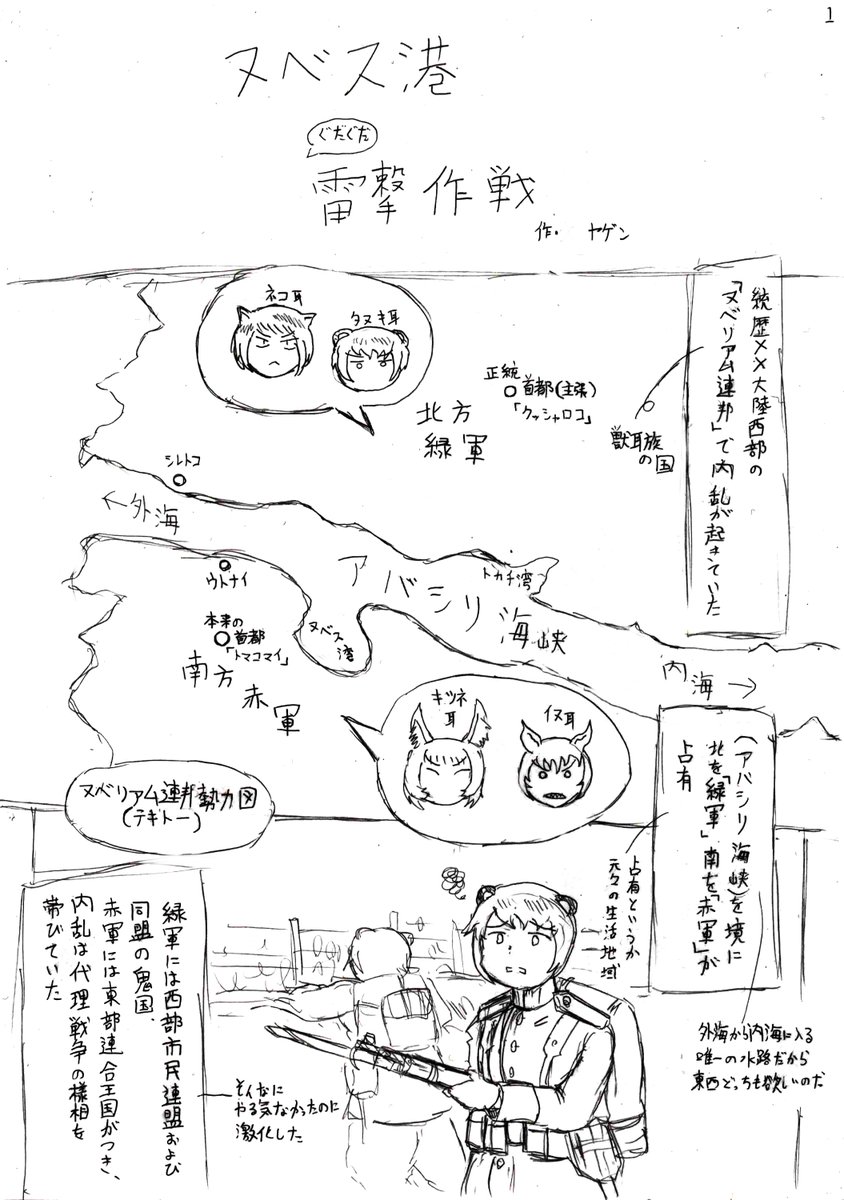 1
ヌベス港
ぐだぐだ
雷撃作戦
作・ヤゲン
統歴××大陸西部の
「ヌベリアム連邦」で内乱が起きていた
獣耳族
の国
ネコ耳
タヌキ耳
正統
首都(主張)
「クッシャロコ」
北方
緑軍
シレトコ
←外海
アバシリ海峡
トカチ湾
ウトナイ
本来の
首都
「トマコマイ」
ヌベス
湾
南方赤軍
内海→
キツネ
耳
イヌ耳
ヌベリアム連邦勢力図
(テキトー)
(アバシリ海峡)を境に
北を「緑軍」南を「赤軍」が
占有
占有というか
元々の生活地域
外海から内海に入る
唯一の水路だから
東西どっちも欲しいのだ
緑軍には西部市民連盟および
同盟の鬼国、
赤軍には東部連合王国がつき、
内乱は代理戦争の様相を
帯びていた
そんなに
やる気なかったのに
激化した